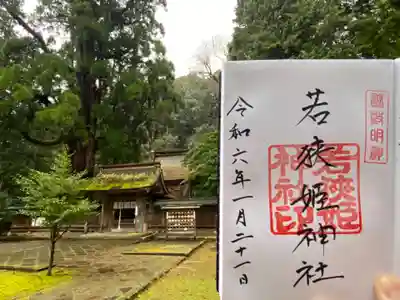 國幣明神
若狭姫神社
若狭姫
神社印
令和六年一月二十一日